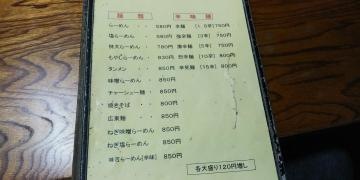 麺類 辛味麺
らーめん ・・ 580円 辛麺 [1.5辛]750円
塩らーめん ・・ 580円 強辛麺 [3辛] 750円
特大らーめん ・ 780円 激辛麺 [5辛] 750円
もやしらーめん 830円 烈辛麺 [10辛]800円
タンメン ・・ 850円 辛晃麺 [15辛] 800円
味噌らーめん ・ 850円
チャーシュー麺 ・ 850円
焼きそば ・・ 800円
広東麺 ・・ 850円
ねぎ味噌らーめん 850円
ねぎ塩らーめん 850円
味噌らーめん[辛味] 850円
各大盛り120円増し